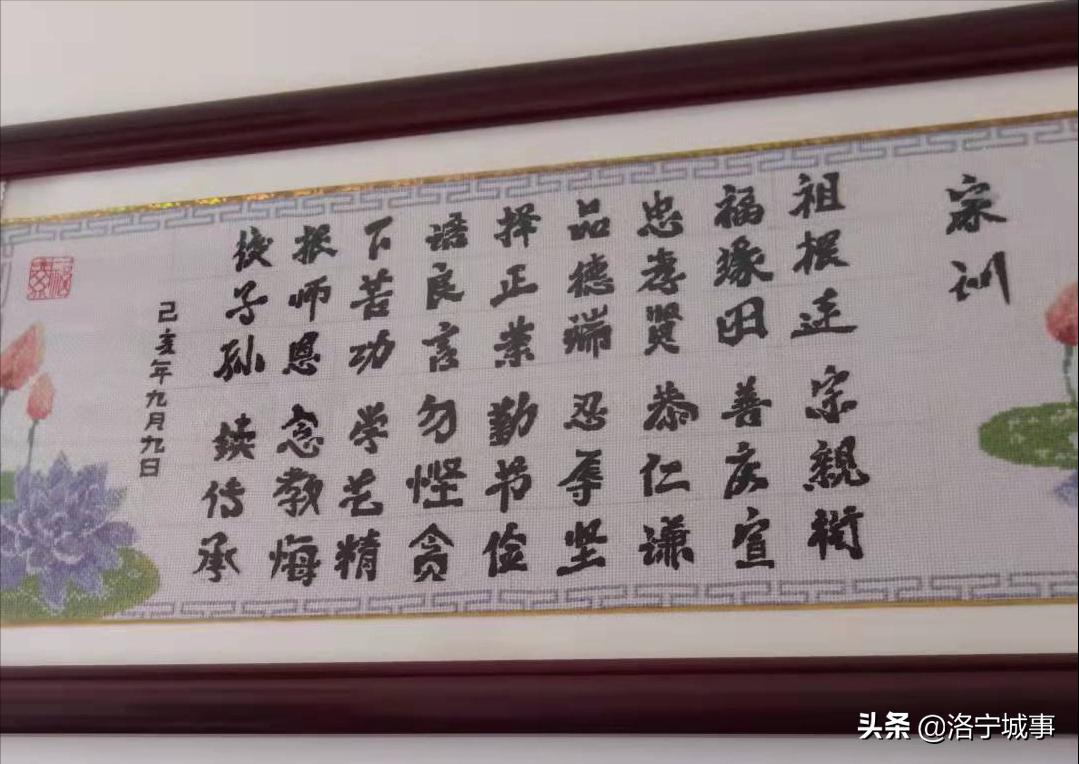 家训
祖根连 宗親
福缘田 善庆宣
忠孝贤 恭仁谦
品德端 忍辱坚
择正业 勤节俭
语良言 勿悭贪
下苦功 学艺精
报师恩 念教悔
子孙 续传承
己亥年九月九日
头条 @洛宁城事